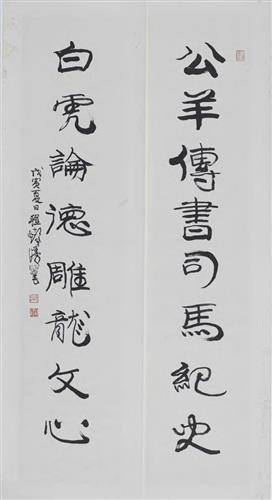 公羊傳書司馬紀史
白虎論德雕龍文心
戊寅夏日